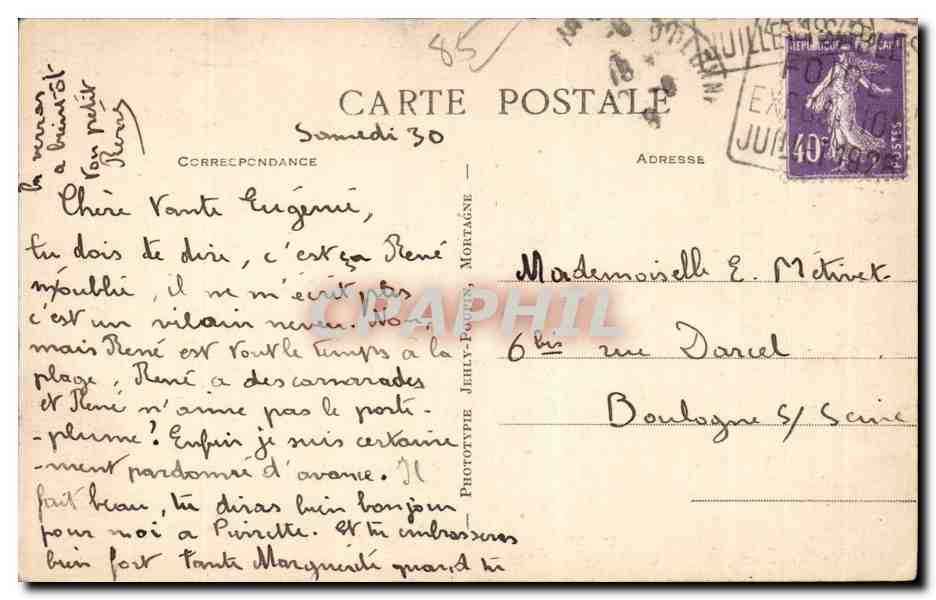 85
CARTE POSTALE
Samedi 30
CORRESPONDANCE
ADRESSE
Chère Tante Eugénie,
tu dois te dire, c'est ça René
m'oublie, il ne m'écrit pas
c'est un vilain neveu. Non,
mais René est tout le temps à la
plage, René a des camarades
et René n'aime pas le porte-
-plume! Enfin je suis certaine
-ment pardonné d'avance. Il
fait beau, tu diras bien bonjour
pour moi a Pierrette. Et tu embrasseras
bien fort Tante Marguerite quand tu
la verras
a bientôt
Ton petit
René
PHOTOTYPIE JEHLY-POUPIN, MORTAGNE
Mademoiselle E. Métivet
6 bis rue Darcel
Boulogne s/ Seine
REPUBLIQUE FRANCAISE
40c
POSTES
JUILLET
JUILLET
CPAPHIL